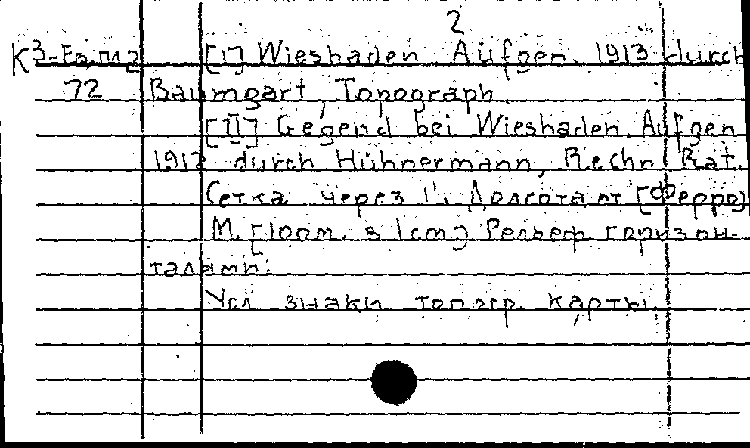 2
К3-Га.п2 [I] Wiesbaden. Aufgen. 1913 durch
72 Baumgart, Topograph.
[II] Gegend bei Wiesbaden. Aufgen
1912 durch Hühnermann, Rechn. Rat.
Сетка через 1'. Долгота от [Ферро]
М. [100м. в 1cm] Рельеф горизон-
талями.
Усл знаки топогр. карты.